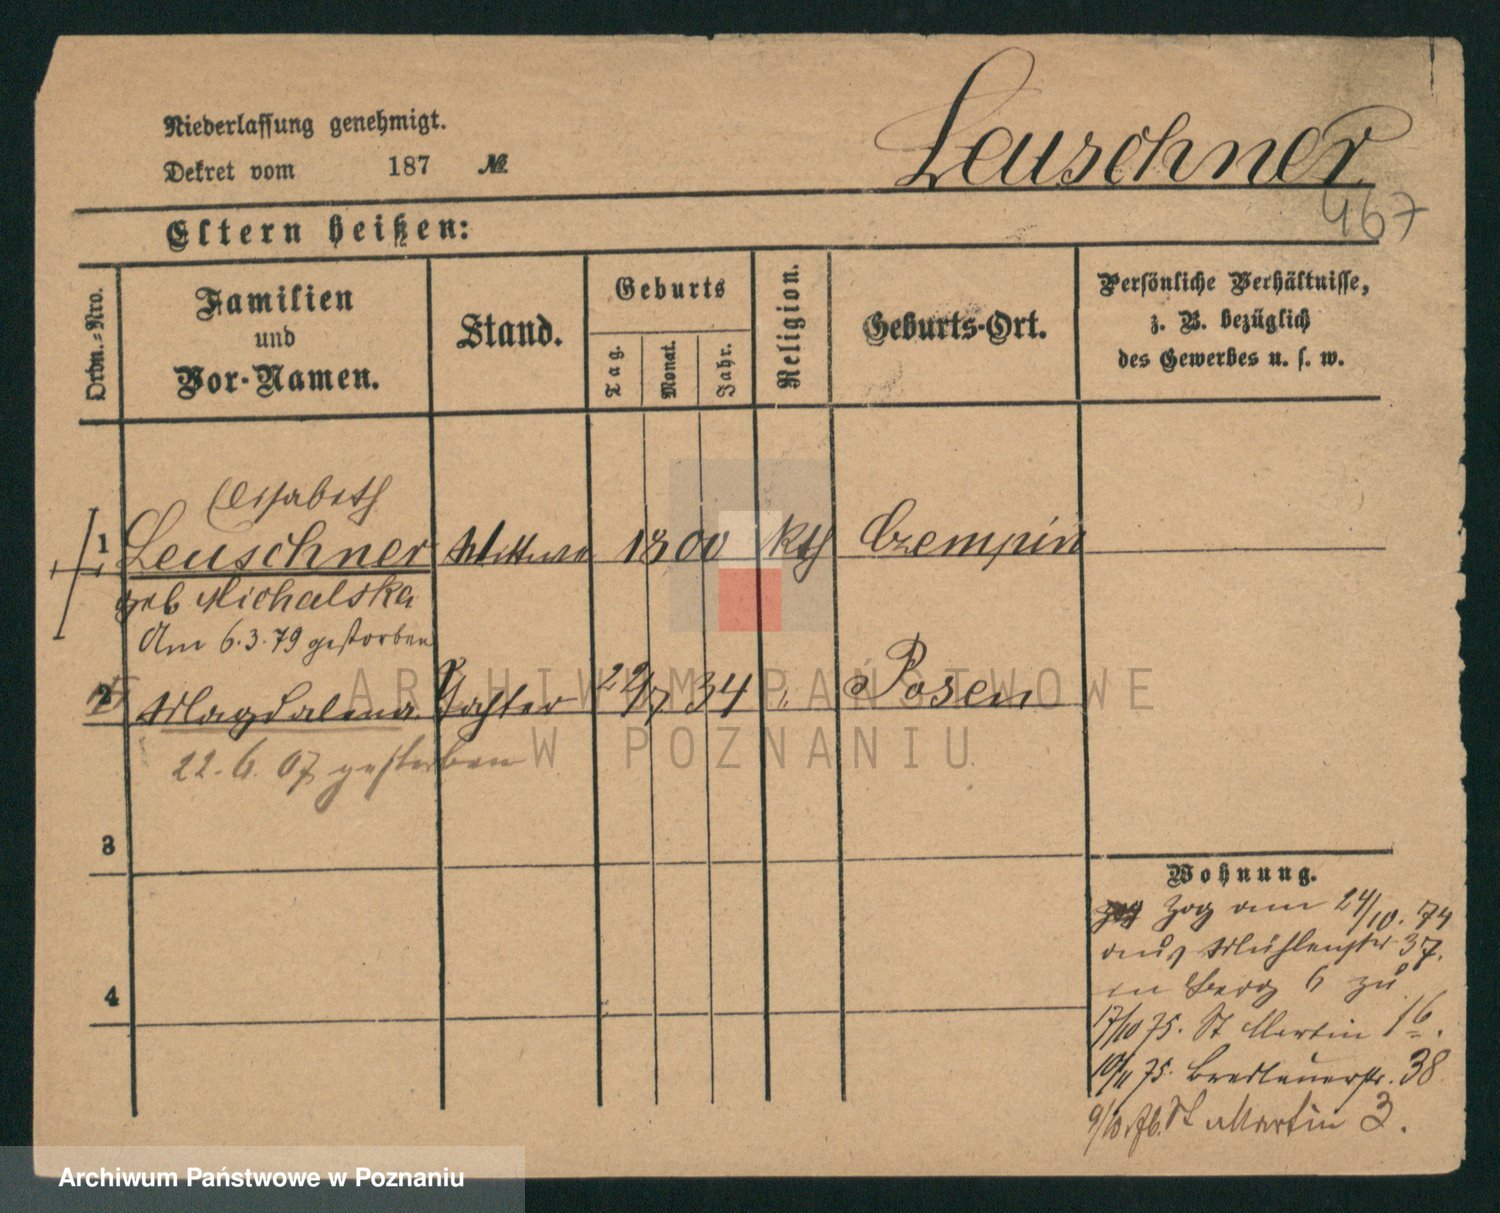 Niederlassung genehmigt.
Dekret vom 187 №
Leuschner
467
Eltern heißen:
Ordn.-Nro.
Familien
und
Vor-Namen.
Stand.
Geburts
Tag.
Monat.
Jahr.
Religion.
Geburts-Ort.
Persönliche Verhältnisse,
z. B. bezüglich
des Gewerbes u. s. w.
Elisabeth
1 Leuschner Wittwe 1800 kth Czempin
geb Michalska
Am 6.3.79 gestorben
2 Magdalena Tochter 22/7 34 " Posen
22.6.07 gestorben
3
4
Wohnung.
Zog am 24/10. 74
aus Mühlenstr 37.
in Berg 6 zu
17/10 75. St Martin 16.
10/11 75. Breslauerstr. 38
9/10 76. St Martin 3.
ARCHIWUM PAŃSTWOWE
W POZNANIU
Archiwum Państwowe w Poznaniu